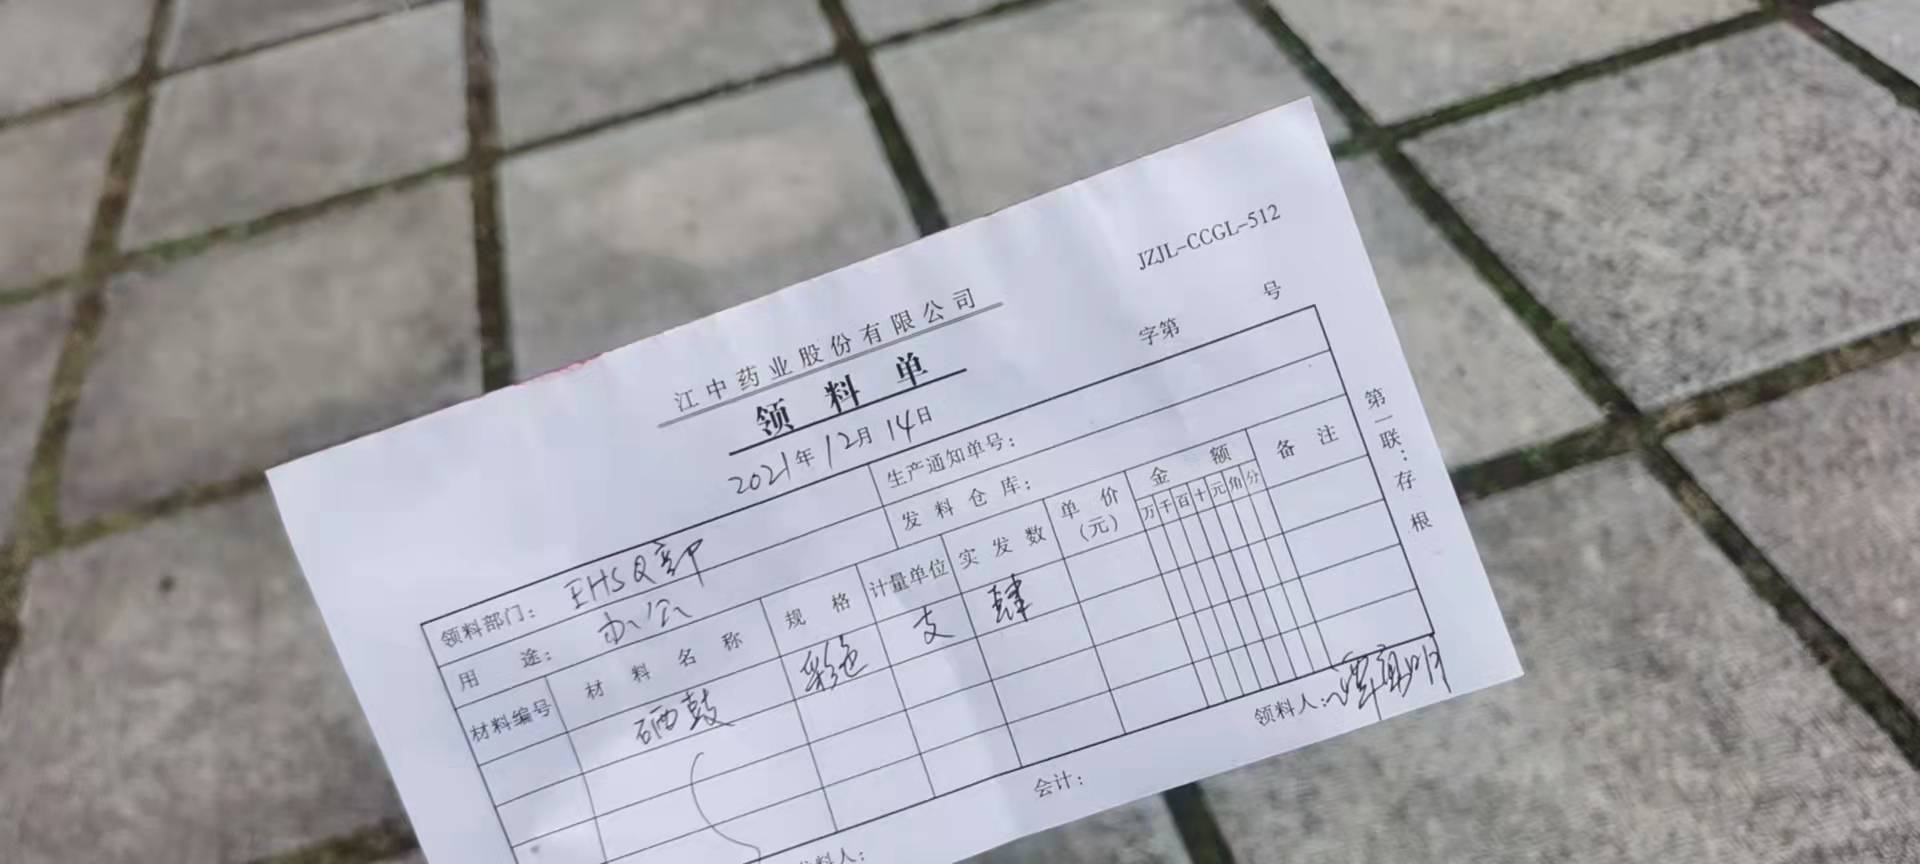 JZJL-CCGL-512
江中药业股份有限公司
领料单
2021年12月14日
字第 号
领料部门： EHSQ部
生产通知单号：
用途： 办公
发料仓库：
材料编号 材料名称 规格 计量单位 实发数 单价(元) 金额 备注
万 千 百 十 元 角 分
硒鼓 彩色 支 肆
第一联：存根
料人：
会计：
领料人：